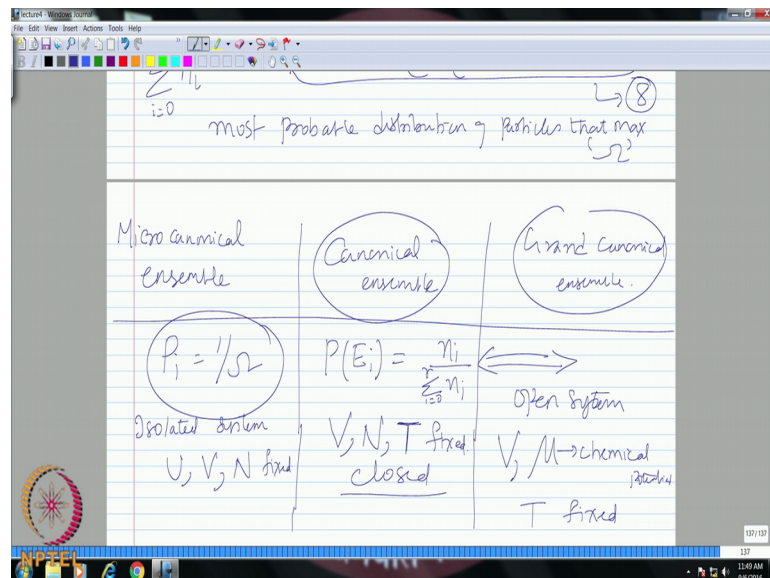 lecture4 - Windows Journal
File Edit View Insert Actions Tools Help
Σ ni
i=0
→ 8
most probable distribution of particles that max
Ω
Microcanonical
ensemble
Canonical
ensemble
Grand Canonical
ensemble.
Pi = 1/Ω
Isolated system
U, V, N fixed
P(Ei) = ni / Σ ni
r
i=0
V, N, T fixed
closed
Open System
V, M → chemical
potential
T fixed
137/137
137
NPTEL
11:49 AM
9/6/2016